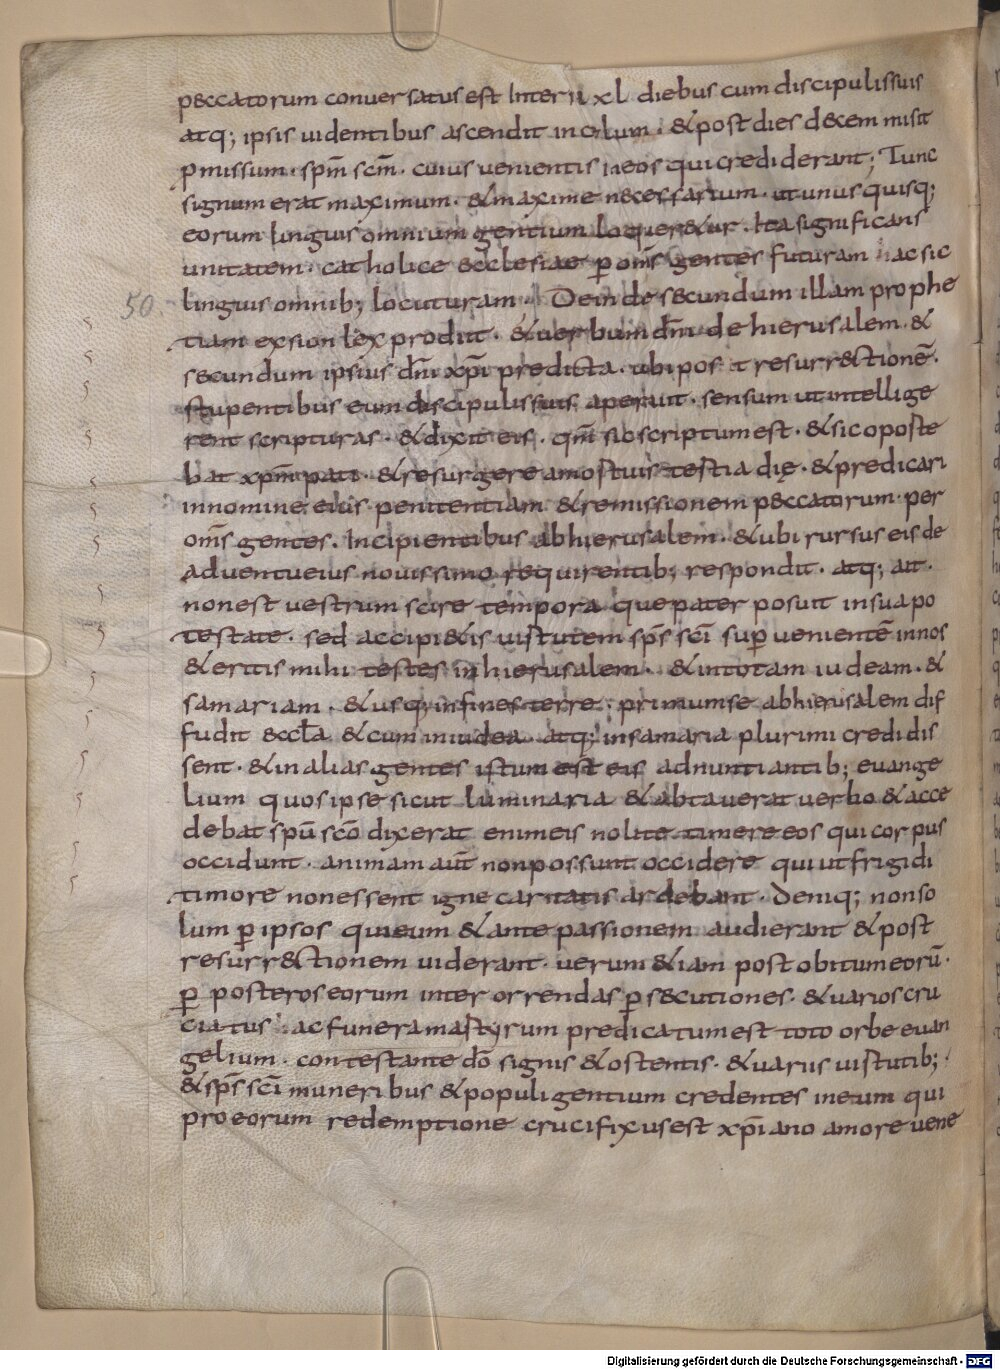 peccatorum conuersatus est Inter xl diebus cum discipulis suis
atq; ipsis uidentibus ascendit in celum · & post dies decem misit
p̱missum · spm̄ scm̄ · cuius uenientis in eos qui crediderant; Tunc
signum erat maximum · & maxime necessarium · ut unus quisq;
eorum linguis omnium gentium loquer&ur · Ita significans
unitatem · catholice ecclesiae ꝑ om̄s gentes futuram ac sic
linguis omnib; locuturam · Dein de secundum illam prophe
50.
tiam ex sion lex prodiit · & uerbum dn̄i de hierusalem · &
secundum ipsius dn̄i xp̄i predicta · ubi pos t resurrectionē ·
stupentibus eum discipulis suis aperuit · sensum ut intellige
rent scripturas · & dixit eis · qm̄ sic scriptum est · & sic oporte
bat xpm̄ pati · & resurgere a mortuis testia die · & predicari
in nomine eius penitentiam & remissionem peccatorum · per
om̄s gentes · Incipientibus ab hierusalem · & ubi rursus eis de
aduentu eius nouissimo requirentib; respondit · atq; ait ·
non est uestrum scire tempora que pater posuit in sua po
testate · sed accipi&is uirtutem sps̄ sci̅ suꝑ uenientē in uos
& eritis mihi testes in hierusalem · & in totam iudeam · &
samariam · & usq; in fines terre · primum se ab hierusalem dif
fudit eccl̄a & cum in iudea atq; in samaria plurimi credidis
sent · & in alias gentes istum est eis adnuntiantib; euange
lium quos ipse sicut luminaria & abtauerat uerbo & acce
debat spū scō dixerat enim eis nolite timere eos qui corpus
occidunt · animam aut̄ non possunt occidere qui ut frigidi
timore non essent igne caritatis ardebant · Deniq; non so
lum ꝑ ipsos qui eum & ante passionem audierant & post
resurrectionem uiderant · uerum &iam post obitum eorū ·
ꝑ posteros eorum inter orrendas ꝑsecutiones · & uarios cru
ciatus ac funera martyrum predicatum est toto orbe euan
gelium · contestante dō signis & ostentis · & uariis uirtutib;
& sps̄ sci̅ muneribus & populi gentium credentes in eum qui
pro eorum redemptione crucifixus est xp̄iano amore uene
Digitalisierung gefördert durch die Deutsche Forschungsgemeinschaft - DFG